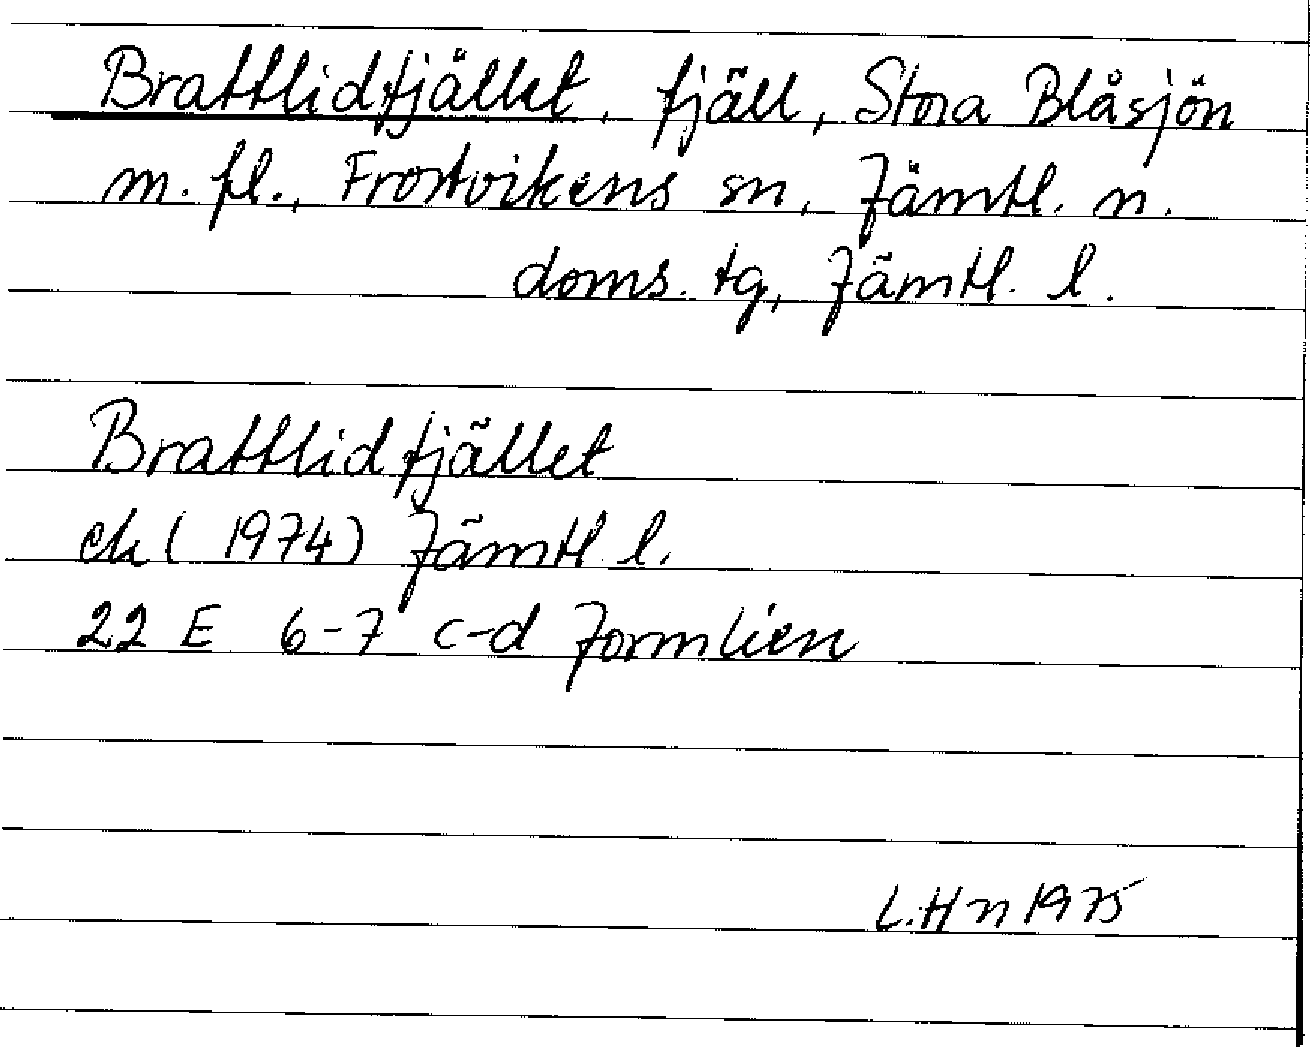 Brattlidfjället, fjäll, Stora Blåsjön
m. fl., Frostvikens sn, Jämtl. n.
doms. tg, Jämtl. l.
Brattlidfjället
ek (1974) Jämtl. l.
22 E 6-7 c-d Jormlien
L.Hn 1975